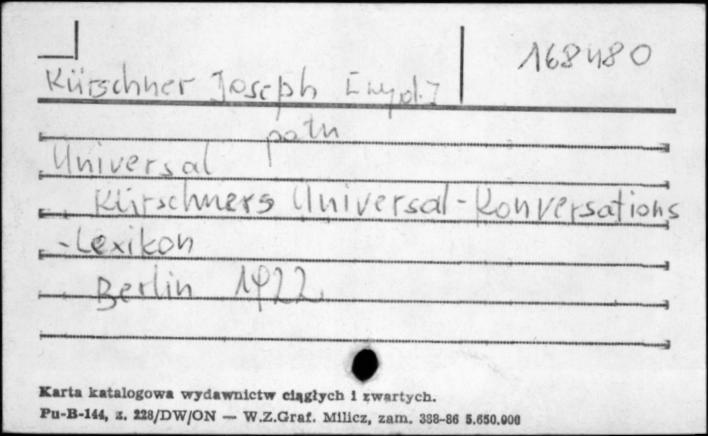 168480
Kürschner Joseph [wyd.]
patrz
Universal
Kürschners Universal-Konversations
-Lexikon
Berlin 1922
Karta katalogowa wydawnictw ciągłych i zwartych.
Pu-B-144, z. 228/DW/ON — W.Z.Graf. Milicz, zam. 338-86 5.650.000